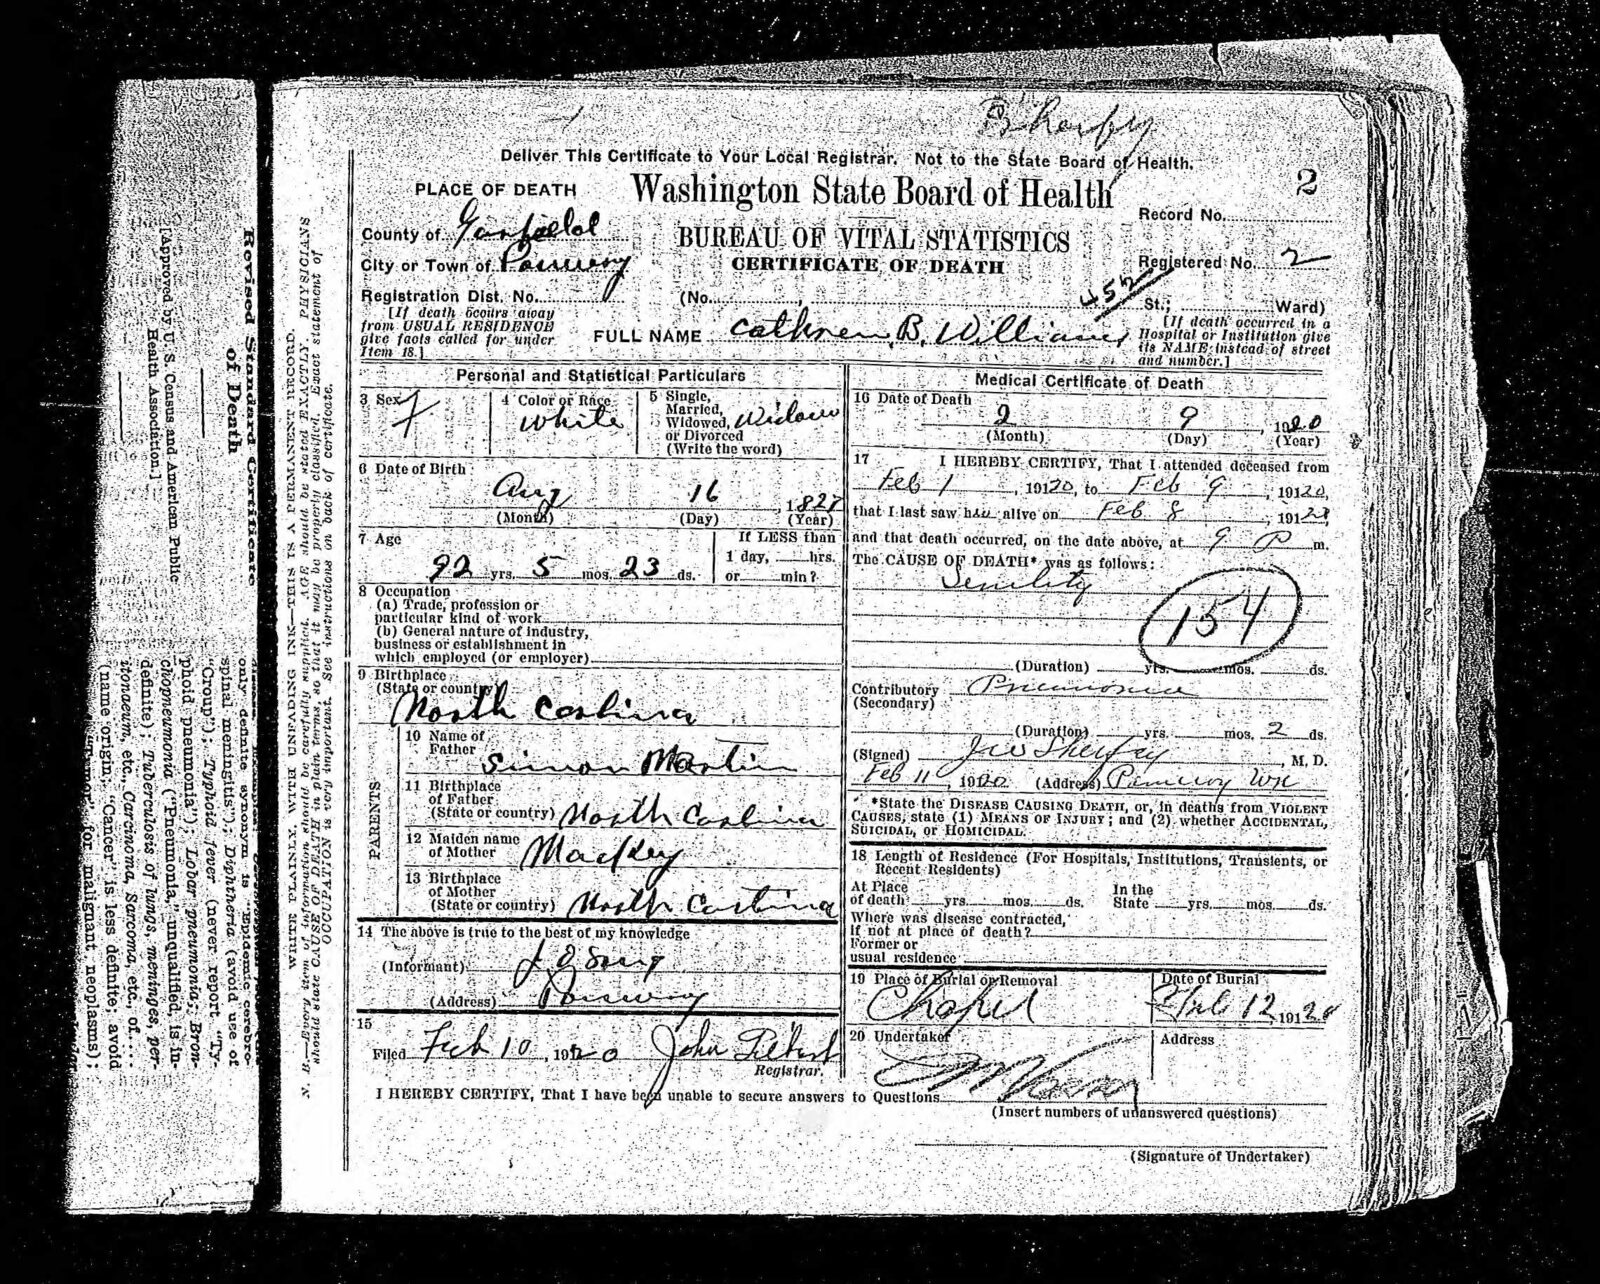 Sherfey
Deliver This Certificate to Your Local Registrar. Not to the State Board of Health.
PLACE OF DEATH
Washington State Board of Health
2
Record No.
County of Garfield
BUREAU OF VITAL STATISTICS
City or Town of Pomeroy
CERTIFICATE OF DEATH
Registered No. 2
Registration Dist. No.
(No. , St.; Ward)
452
[If death occurs away
from USUAL RESIDENCE
give facts called for under
Item 18.]
FULL NAME Cathren B. Williams
[If death occurred in a
Hospital or Institution give
its NAME instead of street
and number.]
Personal and Statistical Particulars
3 Sex F
4 Color or Race White
5 Single,
Married,
Widowed, Widow
or Divorced
(Write the word)
6 Date of Birth
Aug 16, 1827
(Month) (Day) (Year)
7 Age
92 yrs. 5 mos. 23 ds.
If LESS than
1 day, hrs.
or min?
8 Occupation
(a) Trade, profession or
particular kind of work
(b) General nature of industry,
business or establishment in
which employed (or employer)
9 Birthplace
(State or country)
North Carolina
PARENTS
10 Name of
Father
Simon Martin
11 Birthplace
of Father
(State or country) North Carolina
12 Maiden name
of Mother Mackey
13 Birthplace
of Mother
(State or country) North Carolina
14 The above is true to the best of my knowledge
(Informant)
(Address) Pomeroy
15
Filed Feb 10, 1920 John
Registrar.
Medical Certificate of Death
16 Date of Death
2 9, 1920
(Month) (Day) (Year)
17 I HEREBY CERTIFY, That I attended deceased from
Feb 1, 19120, to Feb 9, 19120,
that I last saw her alive on Feb 8, 19120
and that death occurred, on the date above, at 9 P m.
The CAUSE OF DEATH* was as follows:
Senility
154
(Duration) yrs. mos. ds.
Contributory Pneumonia
(Secondary)
(Duration) yrs. mos. 2 ds.
(Signed) J W Sherfey, M. D.
Feb 11, 1920 (Address) Pomeroy Wn
*State the DISEASE CAUSING DEATH, or, in deaths from VIOLENT
CAUSES, state (1) MEANS OF INJURY; and (2) whether ACCIDENTAL,
SUICIDAL, or HOMICIDAL.
18 Length of Residence (For Hospitals, Institutions, Transients, or
Recent Residents)
At Place
of death yrs. mos. ds.
In the
State yrs. mos. ds.
Where was disease contracted,
if not at place of death?
Former or
usual residence
19 Place of Burial or Removal
Chapel
Date of Burial
Feb 12, 19120
20 Undertaker
Address
I HEREBY CERTIFY, That I have been unable to secure answers to Questions
(Insert numbers of unanswered questions)
(Signature of Undertaker)
WRITE PLAINLY, WITH UNFADING INK—THIS IS A PERMANENT RECORD.
N. B.—Every item of information should be carefully supplied. AGE should be stated EXACTLY. PHYSICIANS
should state CAUSE OF DEATH in plain terms, so that it may be properly classified. Exact statement of
OCCUPATION is very important. See instructions on back of certificate.
Revised Standard Certificate
of Death
[Approved by U. S. Census and American Public
Health Association.]
only definite synonym is "Epidemic cerebro-
spinal meningitis"); Diphtheria (avoid use of
"Croup"); Typhoid fever (never report "Ty-
phoid pneumonia"); Lobar pneumonia; Bron-
chopneumonia ("Pneumonia," unqualified, is in-
definite); Tuberculosis of lungs, meninges, per-
itonaeum, etc., Carcinoma, Sarcoma, etc., of....
(name origin; "Cancer" is less definite; avoid
"Tumor" for malignant neoplasms);